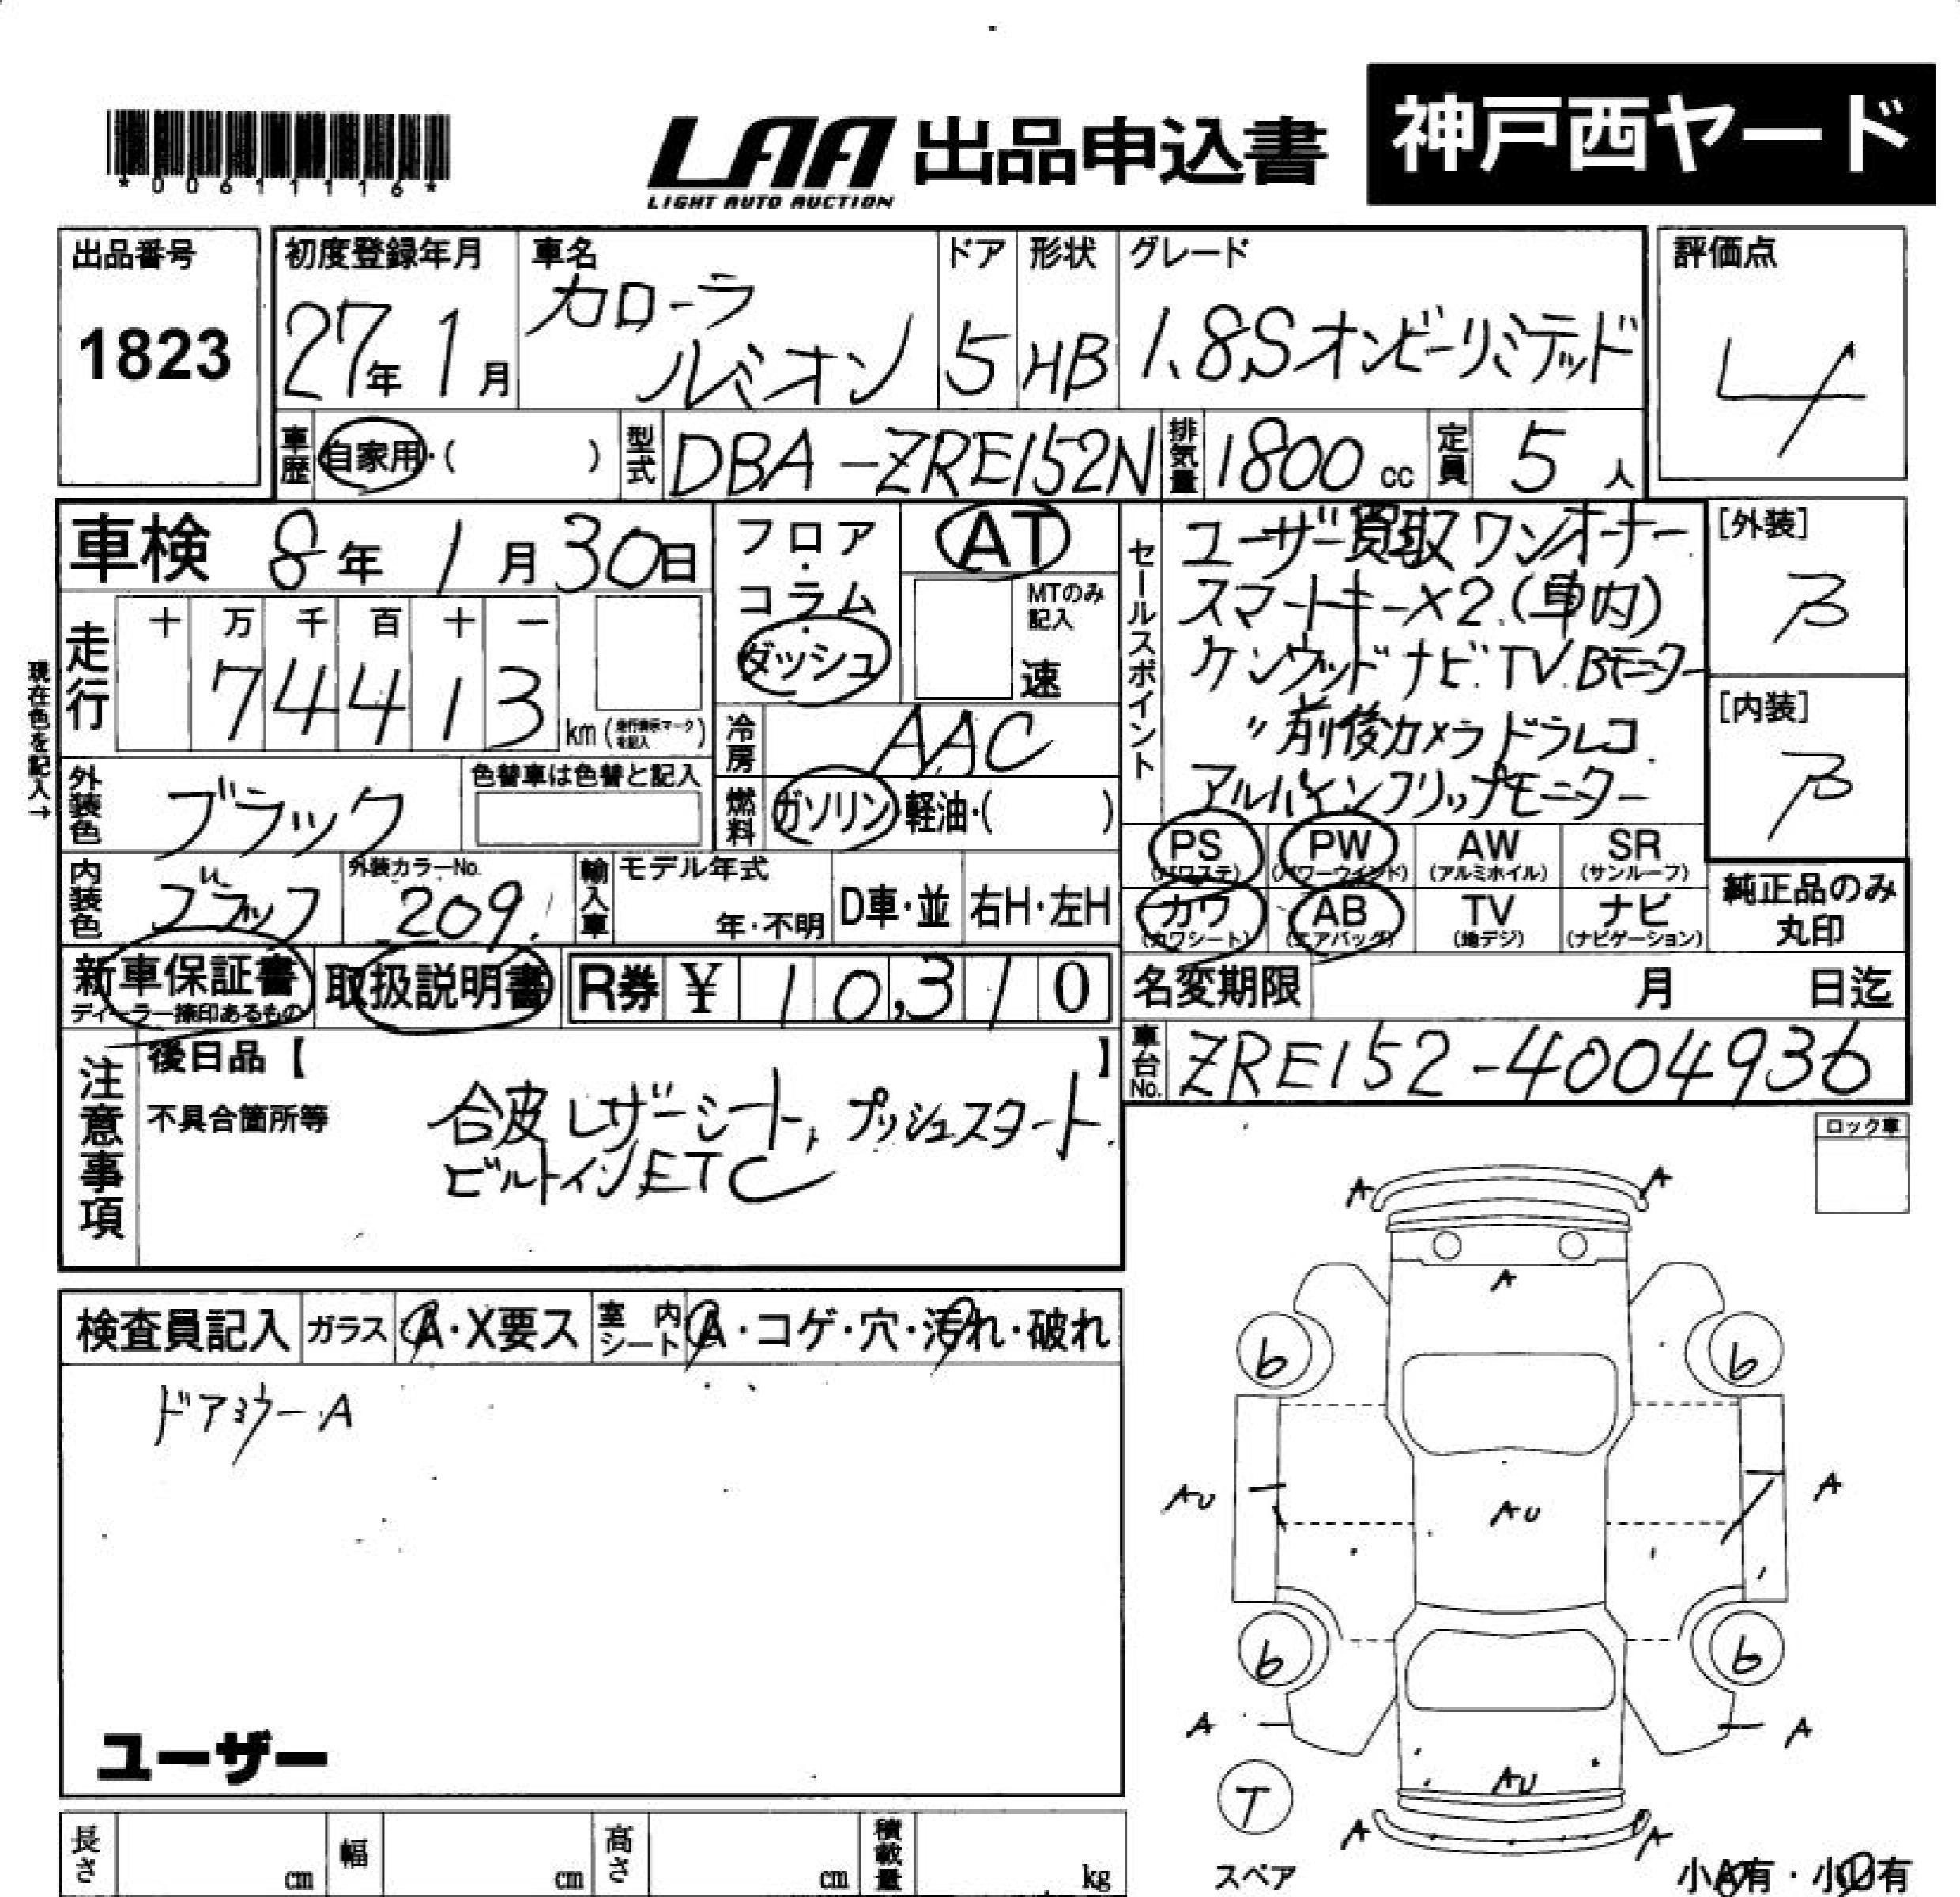 *00611116*
LAA 出品申込書 神戸西ヤード
LIGHT AUTO AUCTION
出品番号 1823
初度登録年月 27年 1月
車名 カローラ ルミオン
ドア 5
形状 HB
グレード 1.8Sオンビーリミテッド
評価点 4
車歴 自家用・( )
型式 DBA-ZRE152N
排気量 1800 cc
定員 5 人
車検 8年 1月 30日
フロア・コラム・ダッシュ
AT
MTのみ記入 速
現在色を記入→
走行 十 万 千 百 十 一
74413 km (走行表示マークを記入)
冷房 AAC
燃料 ガソリン・軽油・( )
外装色 ブラック
色替車は色替と記入
内装色 ブラック
外装カラーNo. 209
輸入車 モデル年式 年・不明 D車・並 右H・左H
セールスポイント
ユーザー買取 ワンオーナー
スマートキー×2.(車内)
ケンウッドナビ.TV.Bモニター
〃 前後カメラドラレコ.
アルパインフリップモニター
[外装] B
[内装] B
PS (パワステ) PW (パワーウインド) AW (アルミホイル) SR (サンルーフ)
カワ (カワシート) AB (エアバッグ) TV (地デジ) ナビ (ナビゲーション)
純正品のみ丸印
新車保証書 ディーラー捺印あるもの
取扱説明書
R券 ¥ 10,310
名変期限 月 日迄
車台No. ZRE152-4004936
注意事項
後日品【 】
不具合箇所等
合皮レザーシート, プッシュスタート.
ビルトインETC
ロック車
検査員記入 ガラス A・X要ス 室内シート A・コゲ・穴・汚れ・破れ
ドアミラーA
ユーザー
A A
A
6 6
AU AU A
6 6
A A
AU
T
スペア
A A
小A有・小U有
長さ cm 幅 cm 高さ cm 積載量 kg